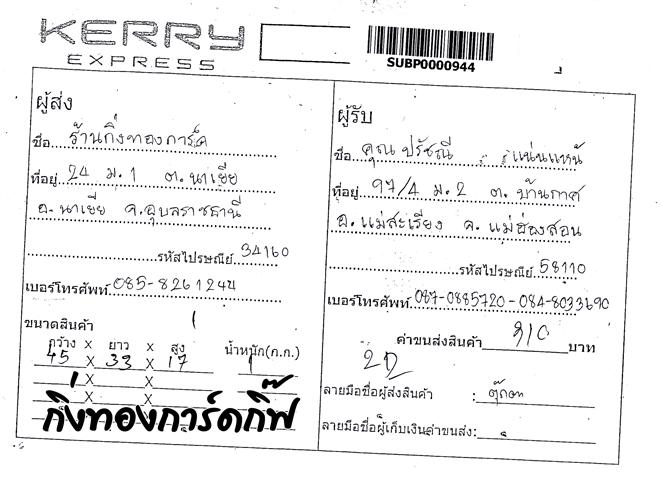 KERRY
EXPRESS
SUBP0000944
ผู้ส่ง
ชื่อ ร้านกิ่งทองการ์ด
ที่อยู่ 24 ม.1 ต.นาเยีย
อ.นาเยีย จ.อุบลราชธานี
รหัสไปรษณีย์ 34160
เบอร์โทรศัพท์ 085-8261244
ขนาดสินค้า
กว้าง x ยาว x สูง น้ำหนัก(ก.ก.)
45 x 33 x 17 1
x x
x x
กิ่งทองการ์ดกิ๊ฟ
ผู้รับ
ชื่อ คุณ ปรัชณี แน่นแหน้
ที่อยู่ 97/4 ม.2 ต.บ้านกาศ
อ.แม่สะเรียง จ.แม่ฮ่องสอน
รหัสไปรษณีย์ 58110
เบอร์โทรศัพท์ 087-0885720-084-8033690
ค่าขนส่งสินค้า 210 บาท
2D
ลายมือชื่อผู้ส่งสินค้า : ตุ๊กตา
ลายมือชื่อผู้เก็บเงินค่าขนส่ง: